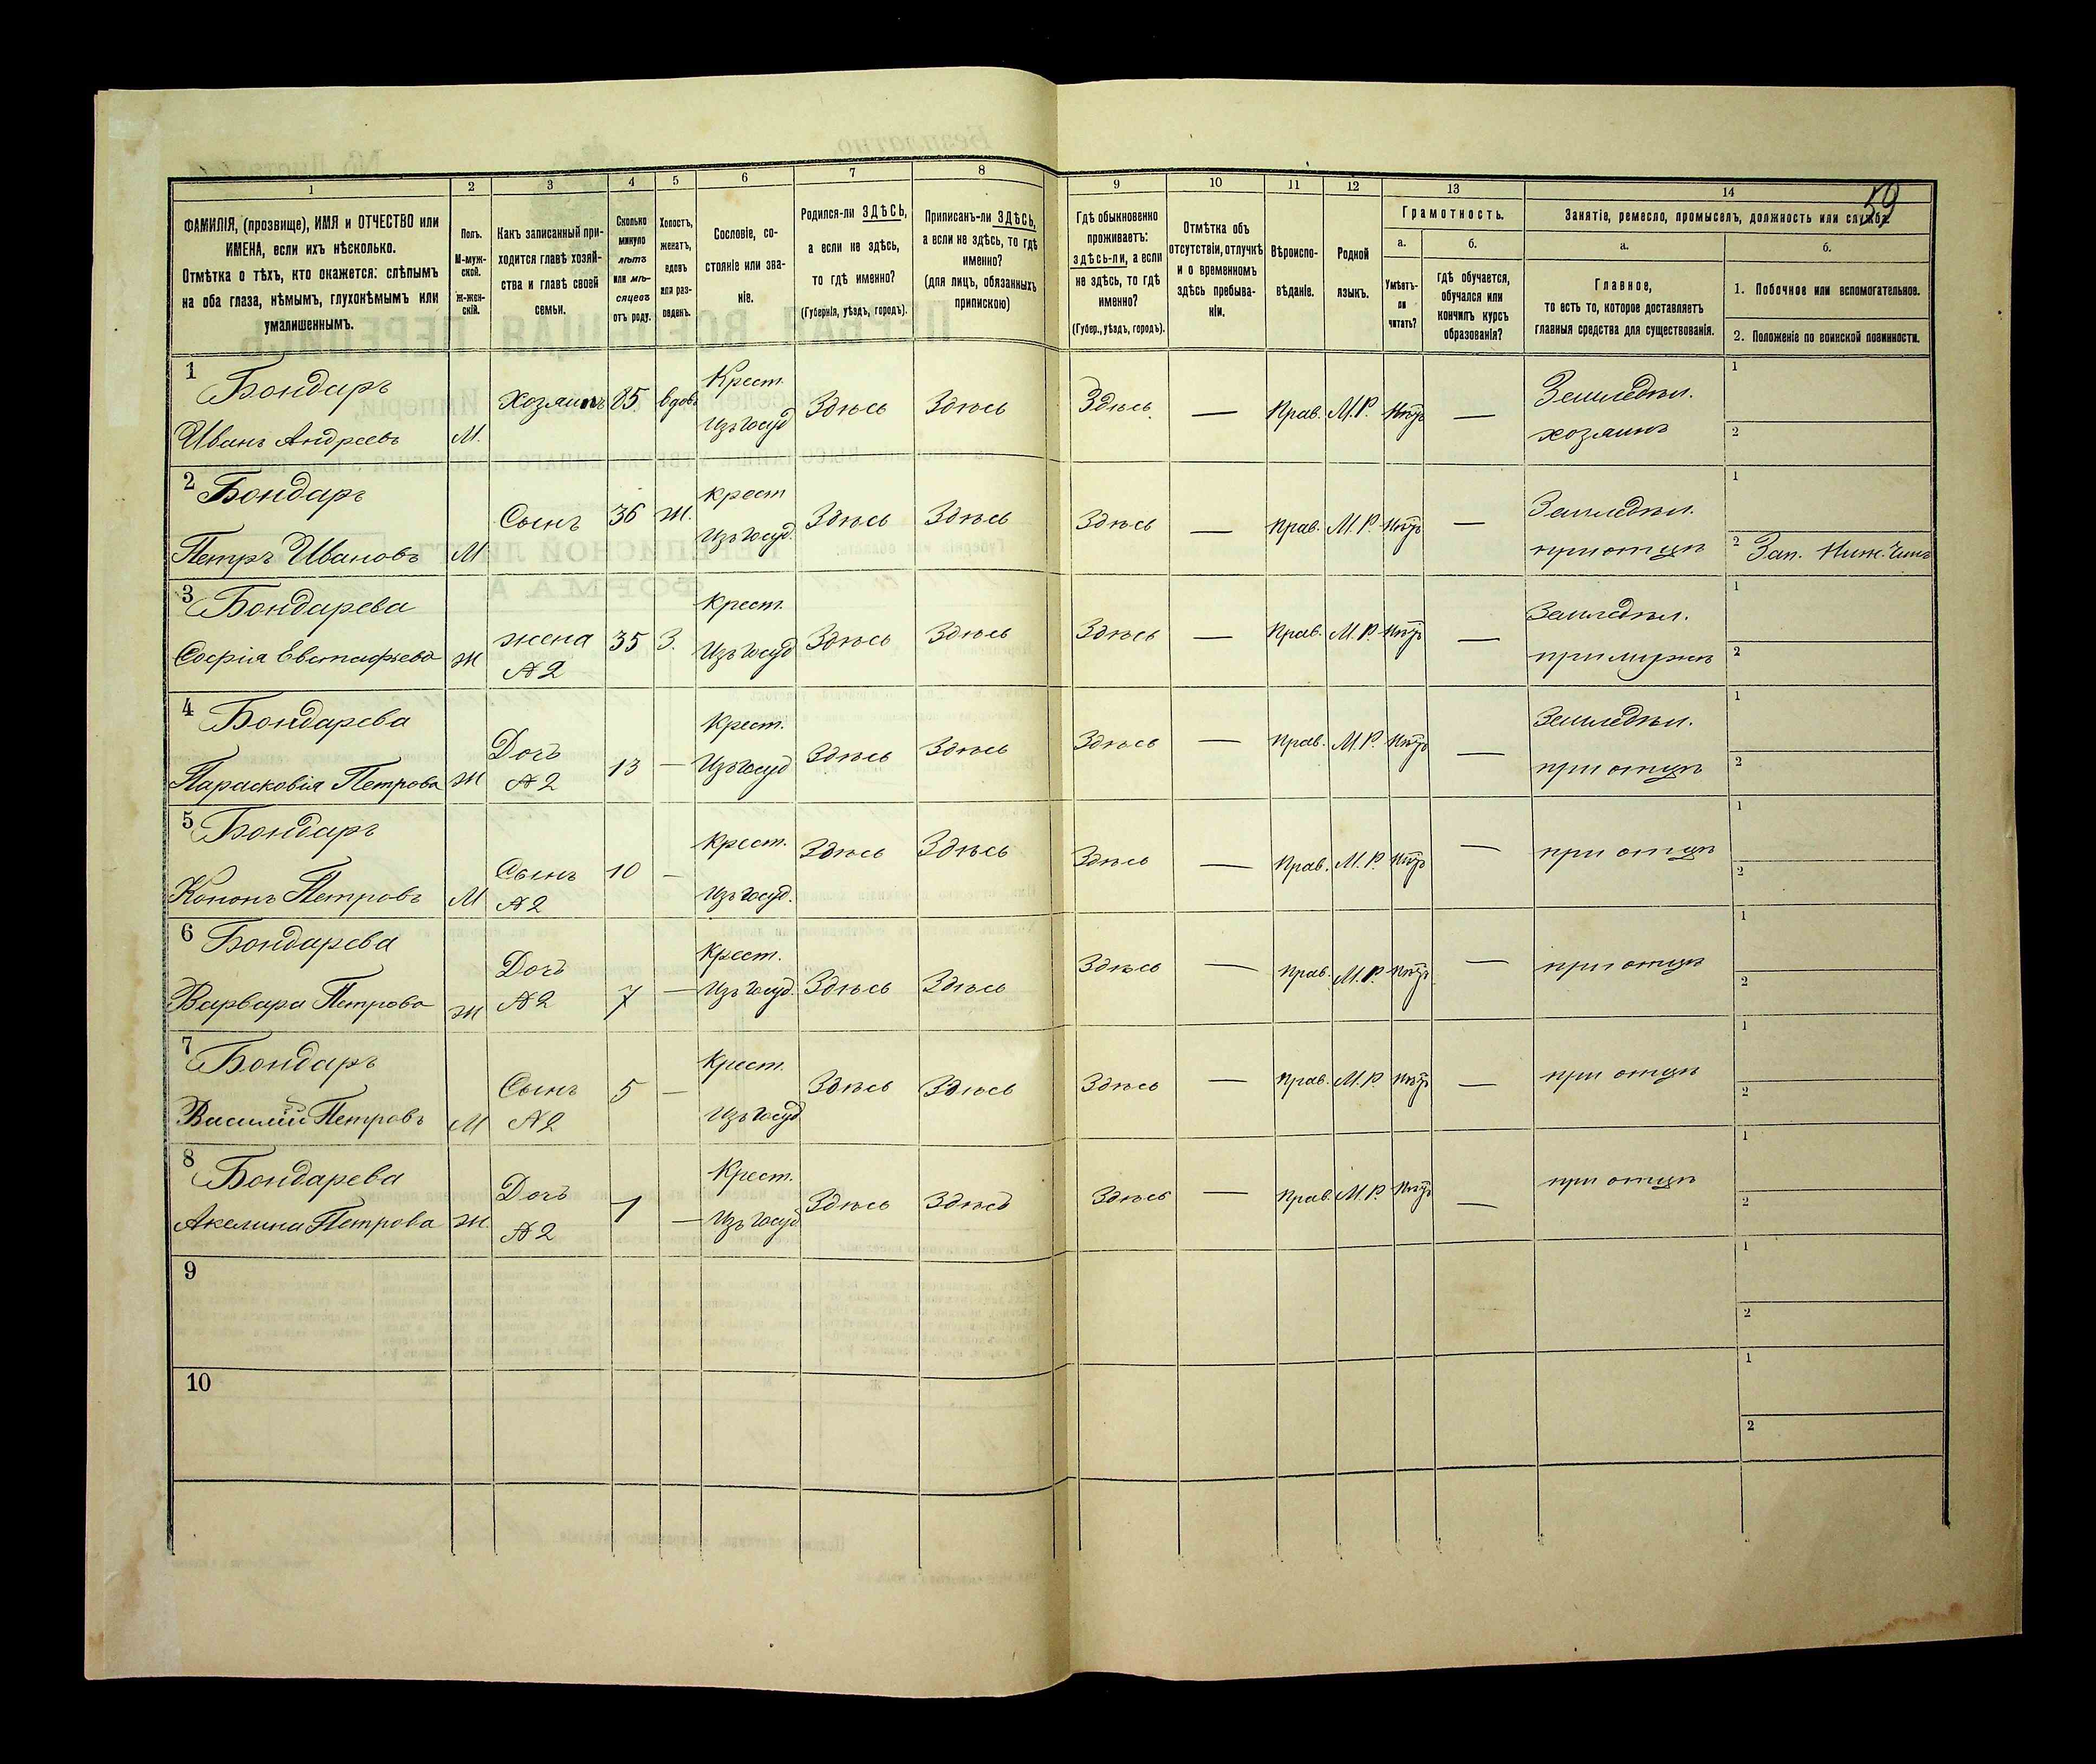 59
1 2 3 4 5 6 7 8 9 10 11 12 13 14
ФАМИЛІЯ, (прозвище), ИМЯ и ОТЧЕСТВО или
ИМЕНА, если ихъ нѣсколько.
Отмѣтка о тѣхъ, кто окажется: слѣпымъ
на оба глаза, нѣмымъ, глухонѣмымъ или
умалишеннымъ.
Полъ.
М-муж-
ской.
Ж-жен-
скій.
Какъ записанный при-
ходится главѣ хозяй-
ства и главѣ своей
семьи.
Сколько
минуло
лѣтъ
или мѣ-
сяцевъ
отъ роду.
Холостъ,
женатъ,
вдовъ
или раз-
веденъ.
Сословіе, со-
стояніе или зва-
ніе.
Родился-ли ЗДѢСЬ,
а если не здѣсь,
то гдѣ именно?
(Губернія, уѣздъ, городъ).
Приписанъ-ли ЗДѢСЬ,
а если не здѣсь, то гдѣ
именно?
(для лицъ, обязанныхъ
припискою)
Гдѣ обыкновенно
проживаетъ:
здѣсь-ли, а если
не здѣсь, то гдѣ
именно?
(Губер., уѣздъ, городъ).
Отмѣтка объ
отсутствіи, отлучкѣ
и о временномъ
здѣсь пребыва-
ніи.
Вѣроиспо-
вѣданіе.
Родной
языкъ.
Грамотность.
а.
Умѣетъ-
ли
читать?
б.
гдѣ обучается,
обучался или
кончилъ курсъ
образованія?
Занятіе, ремесло, промыселъ, должность или служба.
а.
Главное,
то есть то, которое доставляетъ
главныя средства для существованія.
б.
1. Побочное или вспомогательное.
2. Положеніе по воинской повинности.
1 Бондарь Крест. Земледѣл. 1
хозяинъ 85 вдов. Здѣсь Здѣсь Здѣсь — Прав. М.Р. Нѣтъ —
Иванъ Андреевъ М. Изъ госуд хозяинъ 2
2 Бондарь крест Земледѣл. 1
Сынъ 36 ж. Здѣсь Здѣсь Здѣсь — Прав. М.Р. Нѣтъ —
Петръ Ивановъ М Изъ госуд. при отцѣ 2 Зап. Ниж. Чинъ
3 Бондарева Крест. Земледѣл. 1
жена 35 З. Здѣсь Здѣсь Здѣсь — Прав. М.Р. Нѣтъ —
Софія Евстафьева ж №2 Изъ госуд при мужѣ 2
4 Бондарева Крест. Земледѣл. 1
Дочь 13 — Здѣсь Здѣсь Здѣсь — Прав. М.Р. Нѣтъ —
Парасковія Петрова ж №2 Изъ госуд при отцѣ 2
5 Бондарь Крест. 1
Сынъ 10 — Здѣсь Здѣсь Здѣсь — Прав. М.Р. Нѣтъ — при отцѣ
Кононъ Петровъ М №2 Изъ госуд. 2
6 Бондарева Крест. 1
Дочь 7 — Здѣсь Здѣсь Здѣсь — Прав. М.Р. Нѣтъ — при отцѣ
Варвара Петрова ж №2 Изъ госуд. 2
7 Бондарь Крест. 1
Сынъ 5 — Здѣсь Здѣсь Здѣсь — Прав. М.Р. Нѣтъ — при отцѣ
Василій Петровъ М №2 Изъ госуд 2
8 Бондарева Крест. 1
Дочь 1 — Здѣсь Здѣсь Здѣсь — Прав. М.Р. Нѣтъ — при отцѣ
Акелина Петрова ж. №2 Изъ госуд 2
9 1
2
10 1
2